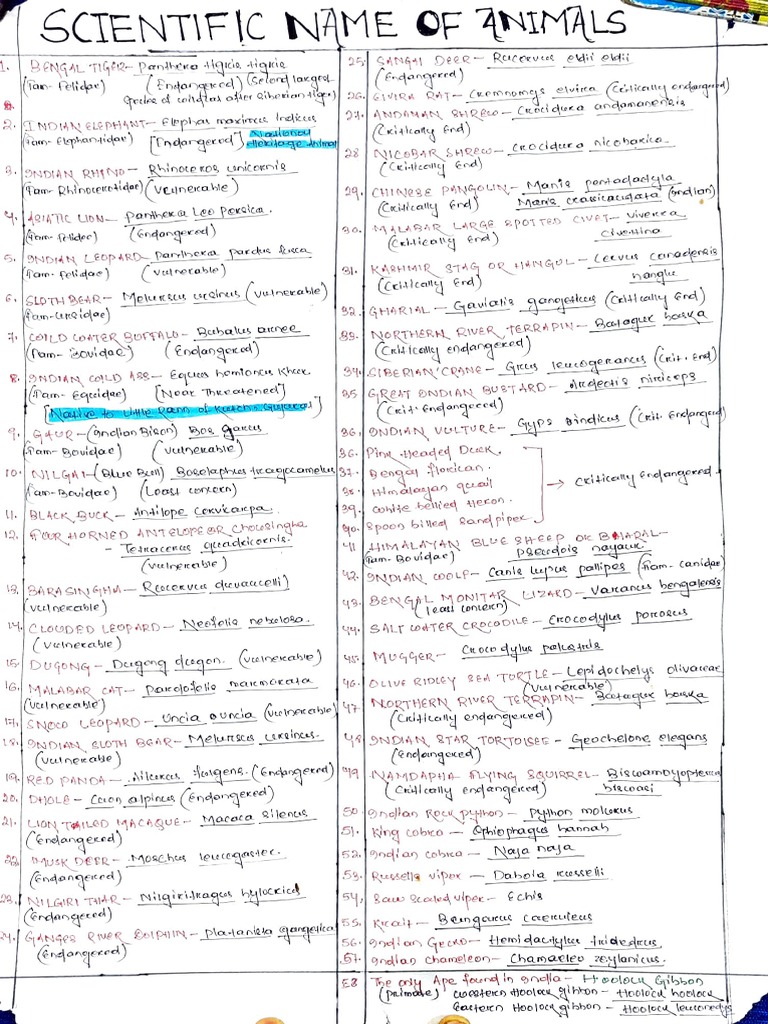 SCIENTIFIC NAME OF ANIMALS
1. BENGAL TIGER- Panthera tigris tigris
(Fam- Felidae) (Endangered) (Second largest
species of wild cat after Siberian tiger)
2. INDIAN ELEPHANT- Elephas maximus Indicus
(Fam- Elephantidae) [Endangered] National
Heritage Animal
3. INDIAN RHINO- Rhinoceros unicornis
(Fam- Rhinocerotidae) (Vulnerable)
4. ASIATIC LION- Panthera Leo Persica.
(Fam- Felidae) (Endangered)
5. INDIAN LEOPARD- Panthera pardus fusca
(Fam- Felidae) (vulnerable)
6. SLOTH BEAR- Melursus ursinus (vulnerable)
(Fam-Ursidae)
7. WILD WATER BUFFALO- Bubalus arnee
(Fam- Bovidae) (Endangered)
8. INDIAN WILD ASS- Equus hemionus khur.
(Fam- Equidae) [Near Threatened]
[Native to Little Rann of Kutch. Gujarat]
9. GAUR-(Indian Bison) Bos gaurus
(Fam- Bovidae) (vulnerable)
10. NILGAI-(Blue Bull) Boselaphus tragocamelus
(Fam-Bovidae) (Least concern)
11. BLACK BUCK- Antilope cervicarpa.
12. FOUR HORNED ANTELOPE OR Chowsingha
- Tetracerus quadricornis.
(vulnerable)
13. BARASINGHA- Rucervus duvaucelli
(vulnerable)
14. CLOUDED LEOPARD- Neofelis nebulosa.
(vulnerable)
15. DUGONG- Dugong dugon. (vulnerable)
16. MALABAR CAT- Pardofelis marmorata
(vulnerable)
17. SNOW LEOPARD- Uncia uncia (vulnerable)
18. INDIAN SLOTH BEAR- Melursus ursinus.
(vulnerable)
19. RED PANDA- Ailurus fulgens. (Endangered)
20. DHOLE- Cuon alpinus (Endangered)
21. LION TAILED MACAQUE- Macaca Silenus
(Endangered)
22. MUSK DEER- Moschus leucogaster.
(Endangered)
23. NILGIRI THAR- Nilgiritragus hylocrius
(Endangered)
24. GANGES RIVER DOLPHIN- Platanista gangetica
(Endangered)
25. SANGAI DEER- Rucervus eldii eldii
(Endangered)
26. ELVIRA RAT- Cremnomys elvira (Critically endangered)
27. ANDAMAN SHREW- Crocidura andamanensis
(Critically End)
28 NICOBAR SHREW- Crocidura nicobarica.
(Critically End)
29. CHINESE PANGOLIN- Manis pentadactyla
(Critically End) Manis crassicaudata (Indian)
30. MALABAR LARGE SPOTTED CIVET- Viverra
(Critically End) civettina
31. KASHMIR STAG OR HANGUL- Cervus canadensis
(Critically End) hanglu
32. GHARIAL- Gavialis gangeticus (Critically End)
33. NORTHERN RIVER TERRAPIN- Batagur baska
(Critically endangered)
34. SIBERIAN CRANE- Grus leucogeranus (Crit. End)
35 GREAT INDIAN BUSTARD- Ardeotis nigriceps
(Crit. Endangered)
36. INDIAN VULTURE- Gyps indicus (Crit. Endangered)
36. Pink Headed Duck.
37. Bengal florican.
38. Himalayan quail → Critically Endangered.
39. White bellied Heron.
40. Spoon billed Sandpiper.
41 HIMALAYAN BLUE SHEEP OR BHARAL-
(Fam- Bovidae) Pseudois nayaur
42. INDIAN WOLF- Canis lupus pallipes (Fam- canidae)
43. BENGAL MONITAR LIZARD- Varanus bengalensis
(least concern)
44. SALT WATER CROCODILE- Crocodylus porosus
45. MUGGER- Crocodylus palustris
46. OLIVE RIDLEY SEA TORTLE- Lepidochelys olivaceae
(Vulnerable)
47 NORTHERN RIVER TERRAPIN- Batagur baska
(Critically endangered)
48 INDIAN STAR TORTOISEE- Geochelone elegans
(Endangered)
49 NAMDAPHA FLYING SQUIRREL- Biswamoyopterus
(Critically endangered) biswasi
50. Indian Rock python- Python molurus
51. King cobra- Ophiophagus hannah
52. Indian cobra- Naja naja
53. Russells viper- Daboia russelli
54. Saw scaled viper- Echis
55. Krait- Bungarus caeruleus
56. Indian Gecko- Hemidactylus triedrus
57. Indian chameleon- Chamaeleo zeylanicus.
58 The only Ape found in India- Hoolock Gibbon
(primate) Western Hoolock gibbon- Hoolock hoolock
Eastern Hoolock gibbon- Hoolock leuconedys